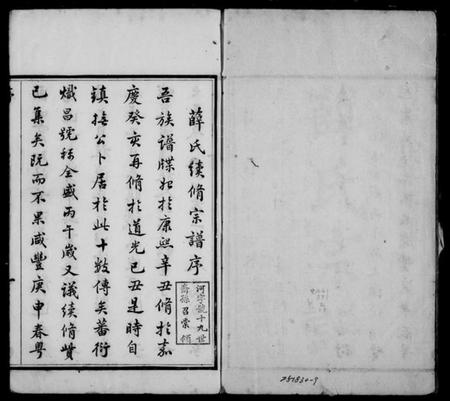 薛氏續脩宗譜序
河字號十九世
裔孫召棠領
吾族譜牒始於康熙辛丑脩於嘉
慶癸亥再脩於道光己丑是時自
鎮接公卜居於此十數傳矣蕃衍
熾昌號稱全盛丙午歲又議續脩貲
已集矣既而不果咸豐庚申春粵
781834-9